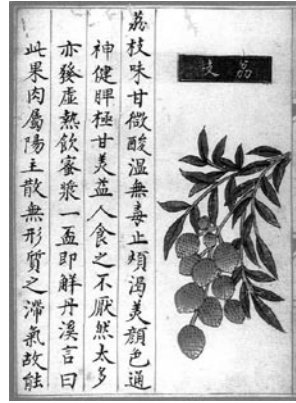 荔枝
荔枝味甘微酸溫無毒止煩渴美顏色通
神健脾極甘美益人食之不厭然太多
亦發虛熱飲蜜漿一盃即解丹溪言曰
此果肉屬陽主散無形質之滯氣故能